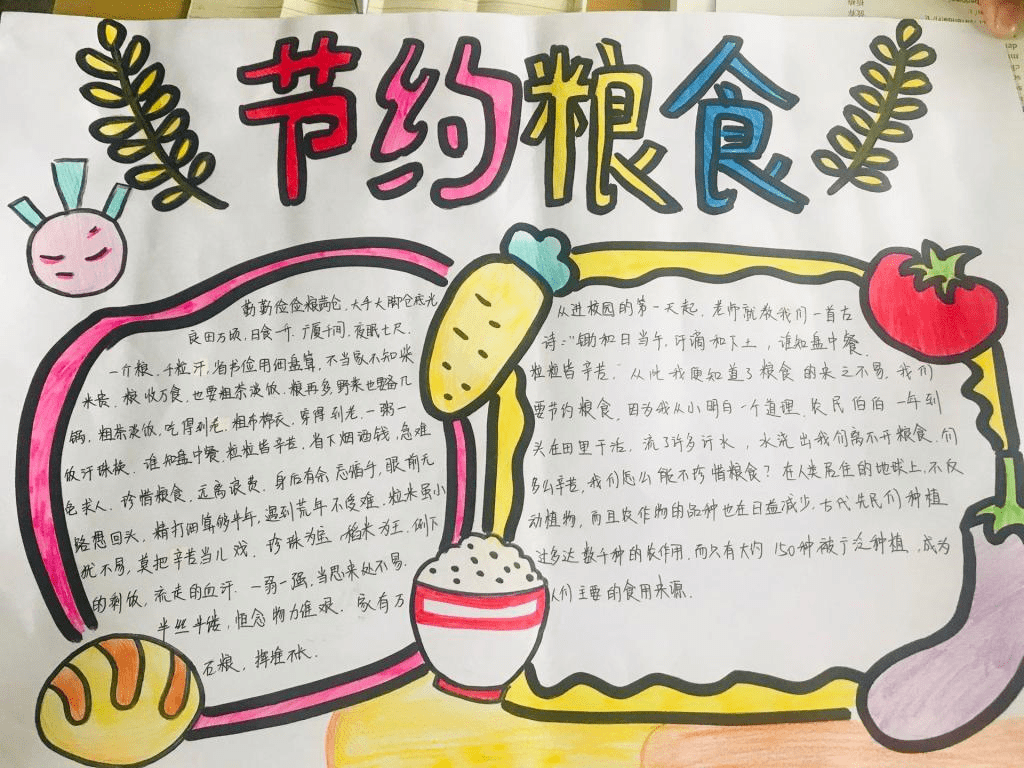 节约粮食
勤勤俭俭粮满仓,大手大脚仓底光
良田万顷,日食一升,广厦千间,夜眠七尺.
一个粮,千粒汗,省书俭用闲盘算,不当家不知柴
米贵.粮收万食,也要粗茶淡饭.粮再多,野菜也要各几
锅,粗茶淡饭,吃得到老.粗布棉衣,穿得到老.一粥一
饭汗珠换.谁知盘中餐,粒粒皆辛苦.省下烟酒钱,急难
免求人.珍惜粮食,远离浪费.身后有余忘缩手,眼前无
路想回头.精打两算够半年,遇到荒年不受难.粒米虽小
犹不易,莫把辛苦当儿戏.珍珠为宝,稻米为王.倒下
的剩饭,流走的血汗.一粥一强,当思来处不易.
半丝半缕,恒念物力维艰.家有万
石粮,挥难不长.
从进校园的第一天起,老师就教我们一首古
诗:"锄和日当午,汗滴和下土,谁知盘中餐,
粒粒皆辛苦."从此我更知道了粮食的来之不易.我们
要节约粮食.因为我从小明白一个道理.农民伯伯一年到
头在田里干活,流了许多汗水,水洗出我们离不开粮食.们
多么辛苦,我们怎么能不珍惜粮食?在人类居住的地球上,不仅
动植物,而且农作物的品种也在日益减少.古代先民们种植
过多达数千种的农作用.而只有大约150种被广泛种植,成为
人们主要的食用来源.